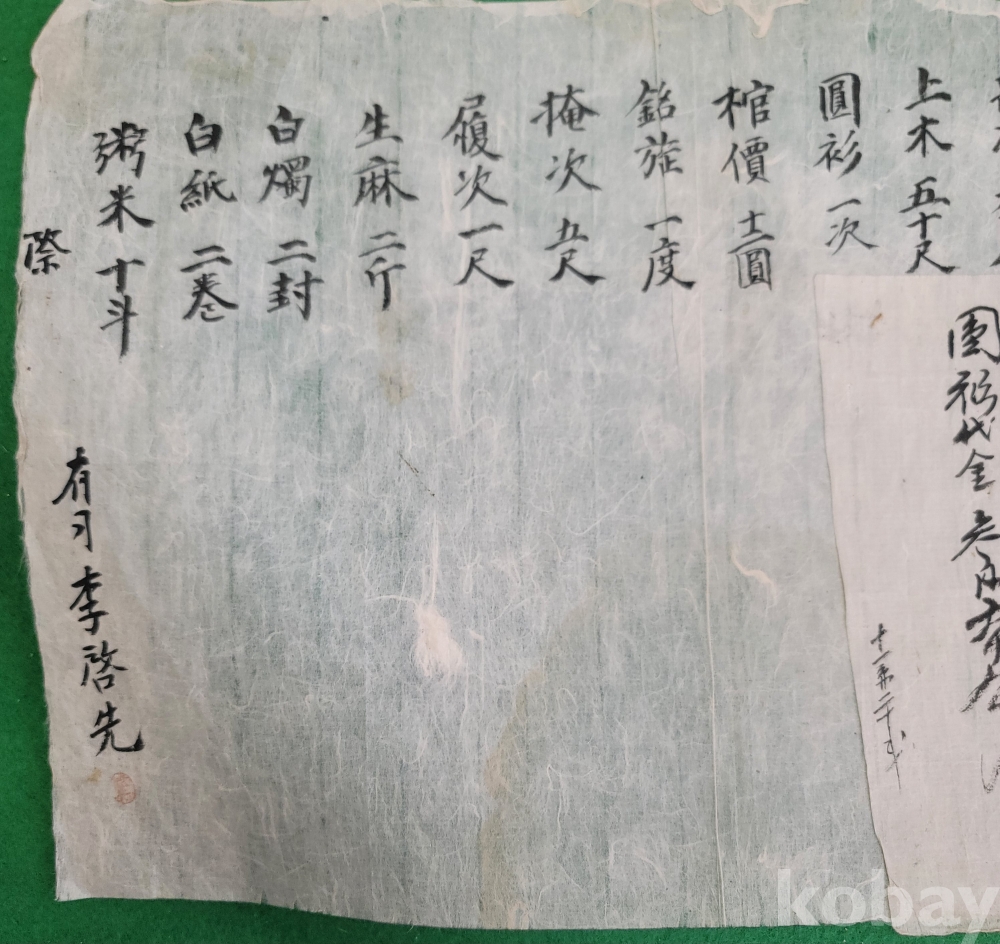 上木 五十尺
圓衫 一次
棺價 十二圓
銘旌 一度
掩次 五尺
履次 一尺
生麻 二斤
白燭 二封
白紙 二卷
粥米 十斗
際
有司 李啓先
代金
kobay